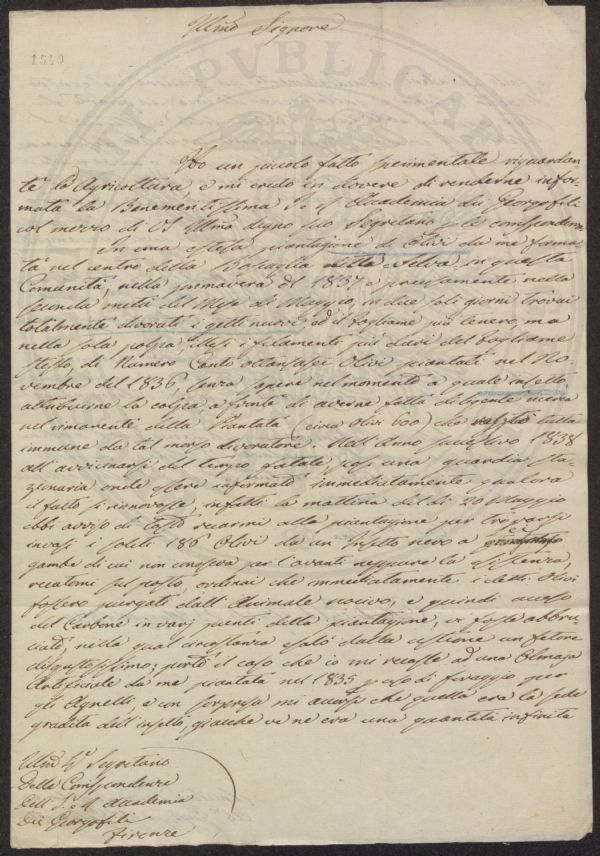 Illmo Signore
1540
PVBLICAE
Ho un piccolo fatto sperimentale riguardan-
te la Agricoltura, e mi credo in dovere di renderne infor-
mata la Benemeritissima I. e R. Accademia dei Georgofili
col mezzo di VS Illma degno suo Segretario delle corrispondenze
In una estesa piantagione di Olivi da me forma-
ta nel centro della Boscaglia detta Selva in questa
Comunità, nella primavera del 1837 e precisamente nella
seconda metà del Mese di Maggio, in dieci soli giorni trovai
totalmente divorati i getti nuovi, ed il fogliame più tenero, ma
nella sola polpa, illesi i filamenti più duri del fogliame
stesso, di Numero Cento ottantasei Olivi piantati nel No-
vembre del 1836, senza sapere nel momento a quale insetto
attribuirne la colpa, a fronte di averne fatta diligente ricerca
nel rimanente della Piantata (circa Olivi 600) che restò tutta
immune da tal morso divoratore. Nell'Anno successivo 1838
all'avvicinarsi del tempo fatale, posi una guardia sta-
zionaria onde essere informato immediatamente qualora
il fatto si rinnovasse, infatti la mattina del dì 20 Maggio
ebbi avviso di tosto recarmi alla piantagione per trovarsi
invasi i soliti 186 Olivi da un Insetto nero a 6
gambe di cui non conosceva per l'avanti neppure la esistenza,
recatomi sul posto, ordinai che immediatamente i detti Olivi
fossero purgati dall'Animale nocivo, e quindi acceso
del Carbone in varj punti della piantagione, vi fosse abbru-
ciato, nella qual circostanza esalò dalla ustione un fetore
disgustosissimo; portò il caso che io mi recassi ad una Olmaja
Artificiale da me piantata nel 1835 p uso di foraggio per
gli Agnelli, e con sorpresa mi accorsi che quella era la sede
gradita dell'insetto, giacchè ve ne era una quantità infinita
Illmo Sr Segretario
Delle Corrispondenze
Dell'I. e R. Accademia
Dei Georgofili
Firenze